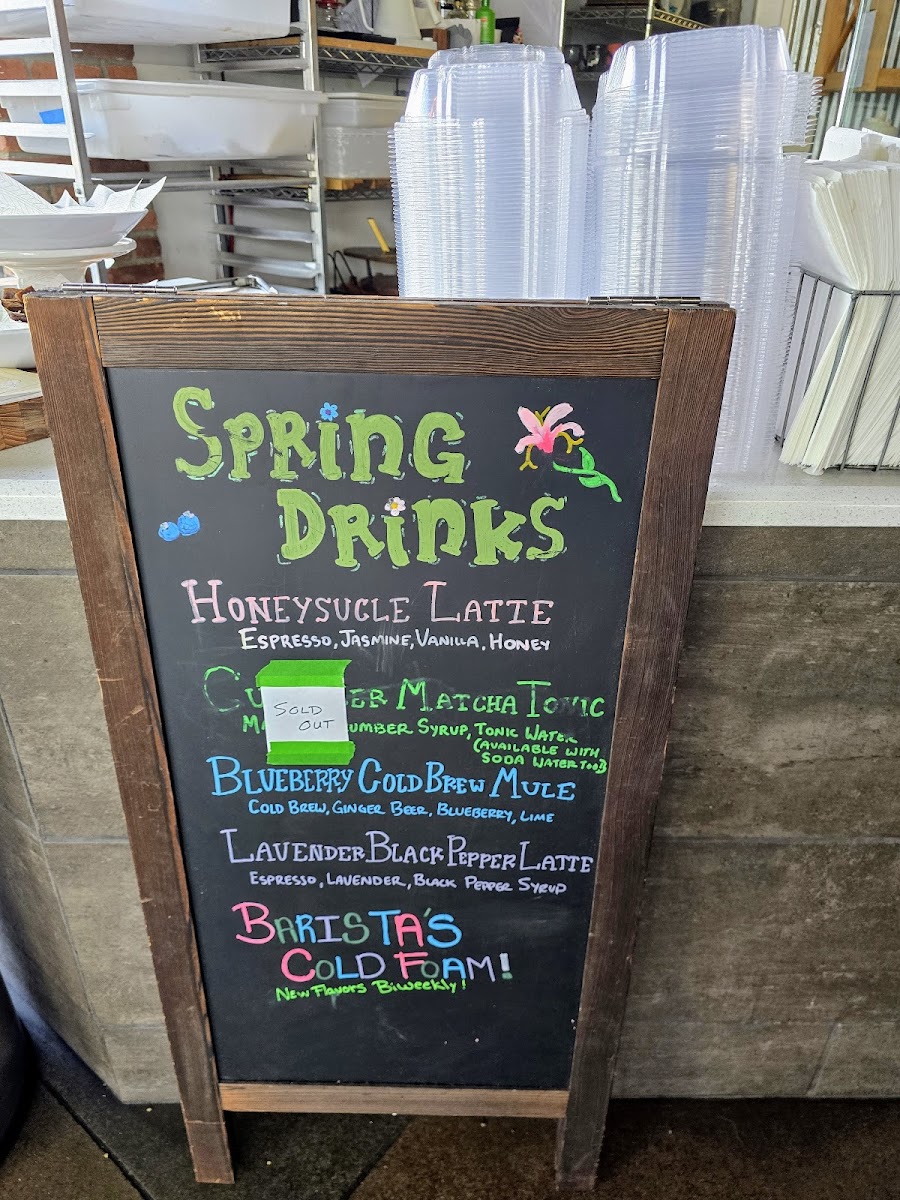 Spring
Drinks
Honeysucle Latte
Espresso, Jasmine, Vanilla, Honey
Matcha Tonic
Sold
out
Syrup, Tonic Water
(Available with
Soda Water too)
Blueberry Cold Brew Mule
Cold Brew, Ginger Beer, Blueberry, Lime
Lavender Black Pepper Latte
Espresso, Lavender, Black Pepper Syrup
Barista's
Cold Foam!
New Flavors Biweekly!